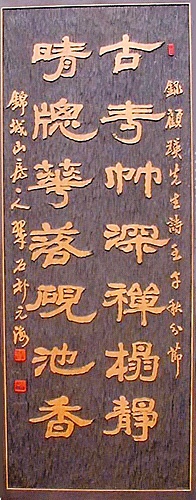 錄顧瑛先生詩壬午秋分節
古寺竹深禪榻靜
晴牕華落硯池香
錦城山房主人翠石許元海